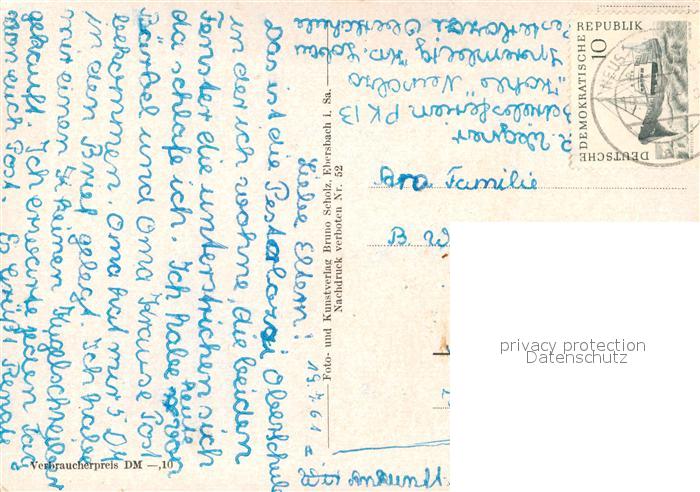 19.4.61
Liebe Eltern!
Das ist die Pestalozzi Oberschule
in der ich wohne, die beiden
Fenster die unterstrichen sich
da schlafe ich. Ich habe heute von
Bärbel und Oma Krause Post
bekommen. Oma hat mir 5 DM
in den Brief gelegt. Ich habe
mir einen kleinen Kugelschreiber
gekauft. Ich erwarte jeden Tag
von euch Post. Es grüßt Renate
Foto- und Kunstverlag Bruno Scholz, Ebersbach i. Sa.
Nachdruck verboten Nr. 52
Verbraucherpreis DM —,10
R. Wagner
PK 13
Pestalozzi Oberschule
DEUTSCHE
DEMOKRATISCHE
REPUBLIK
10
An Familie
B. W
privacy protection
Datenschutz